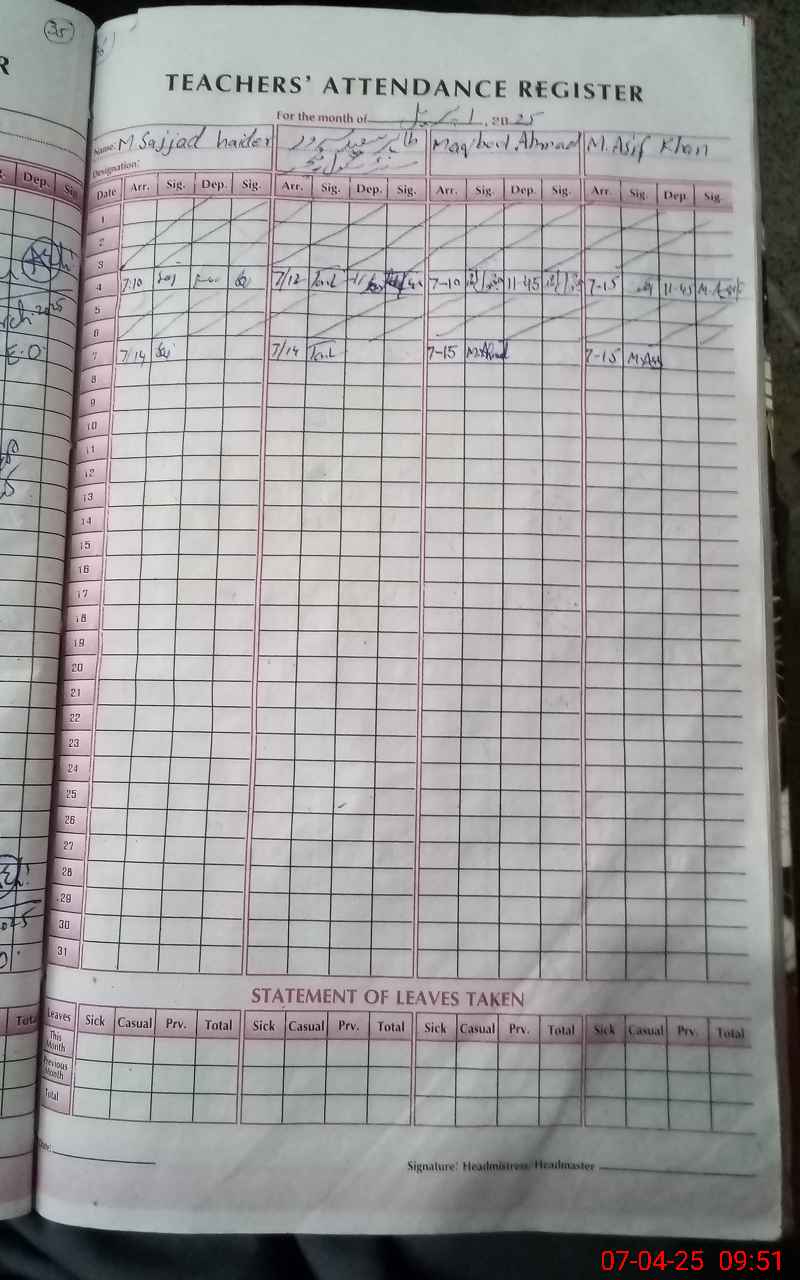 35
TEACHERS' ATTENDANCE REGISTER
For the month of اپریل 2025
Name: M Sajjad haider طاہر سعید Maqbool Ahmad M. Asif Khan
Designation:
Date Arr. Sig. Dep. Sig. Arr. Sig. Dep. Sig. Arr. Sig. Dep. Sig. Arr. Sig. Dep. Sig.
1
2
3
4 7:10 7/12 7-10 11-45 7-15 11-45 M. Asif
5
6
7 7/14 7/14 7-15 M. Ahmad 7-15
8
9
10
11
12
13
14
15
16
17
18
19
20
21
22
23
24
25
26
27
28
29
30
31
STATEMENT OF LEAVES TAKEN
Leaves Sick Casual Prv. Total Sick Casual Prv. Total Sick Casual Prv. Total Sick Casual Prv. Total
This Month
Previous Month
Total
Signature: Headmistress/Headmaster
R
Dep. Sig
E.O
Total
07-04-25 09:51